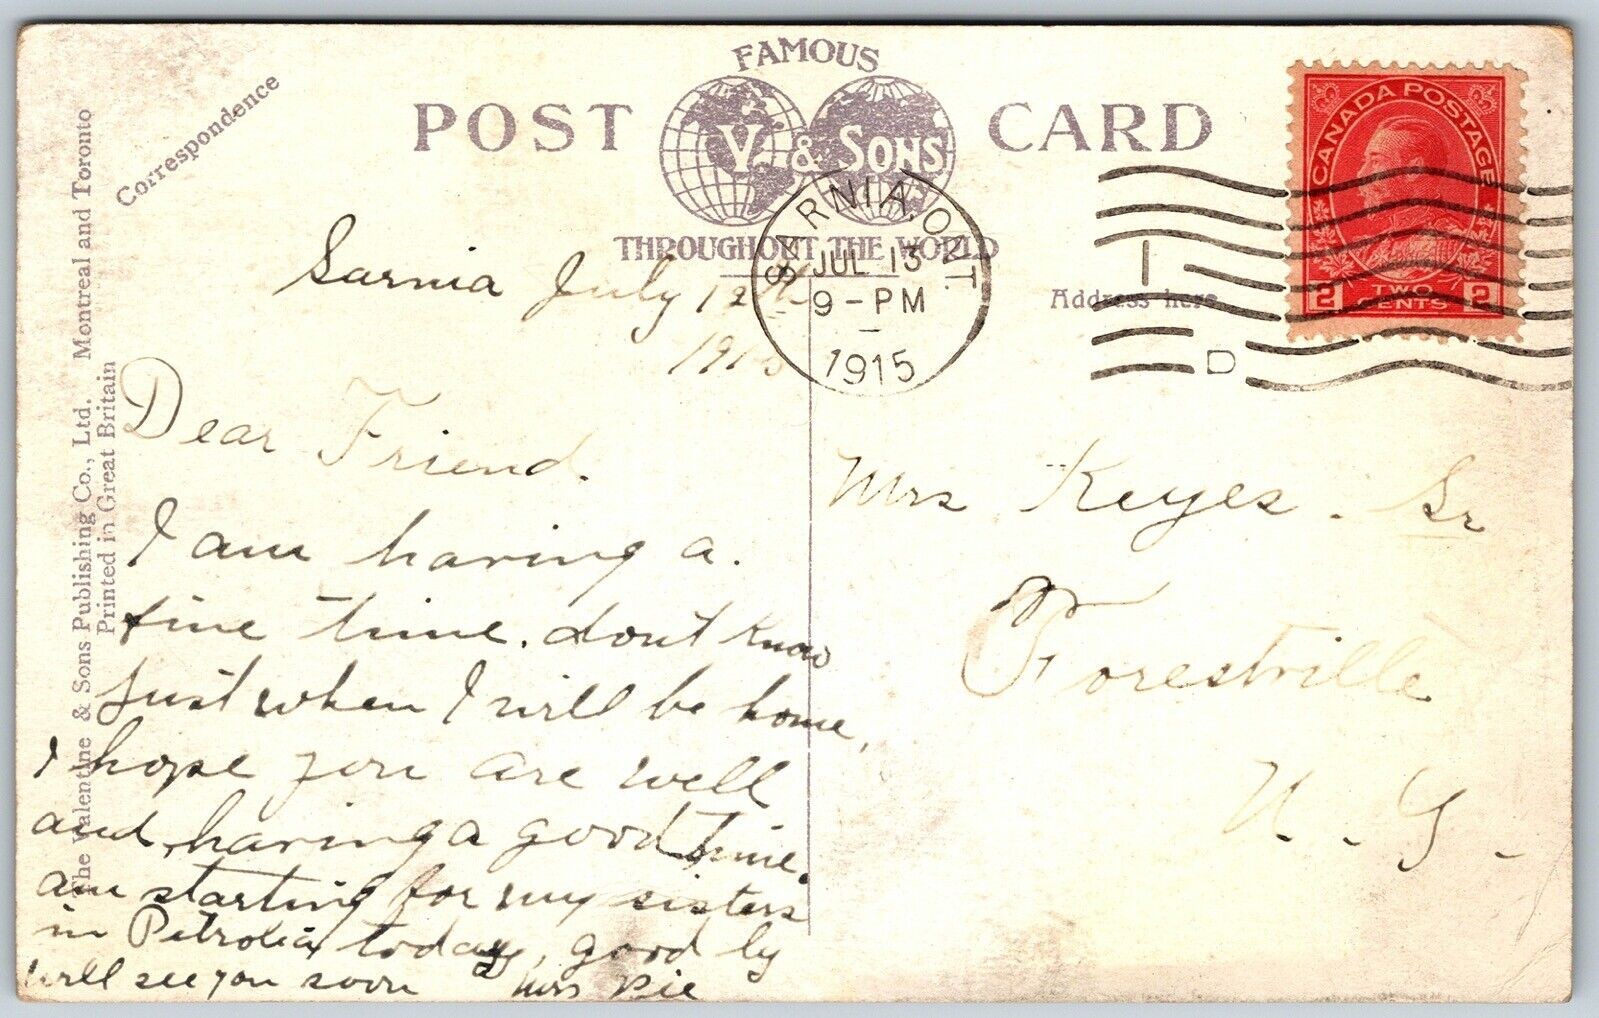 FAMOUS
POST CARD
V. & SONS
THROUGHOUT THE WORLD
Correspondence
Address here
The Valentine & Sons Publishing Co., Ltd. Montreal and Toronto
Printed in Great Britain
CANADA POSTAGE
2 TWO CENTS 2
SARNIA, ONT.
JUL 13
9-PM
1915
1
D
Sarnia July 12th
1915
Dear Friend.
I am having a
fine time. dont know
just when I will be home,
I hope you are well
and having a good time.
am starting for my sisters
in Petrolia today, good by
will see you soon Mrs
Mrs Keyes. Sr
Forestville
N. Y.